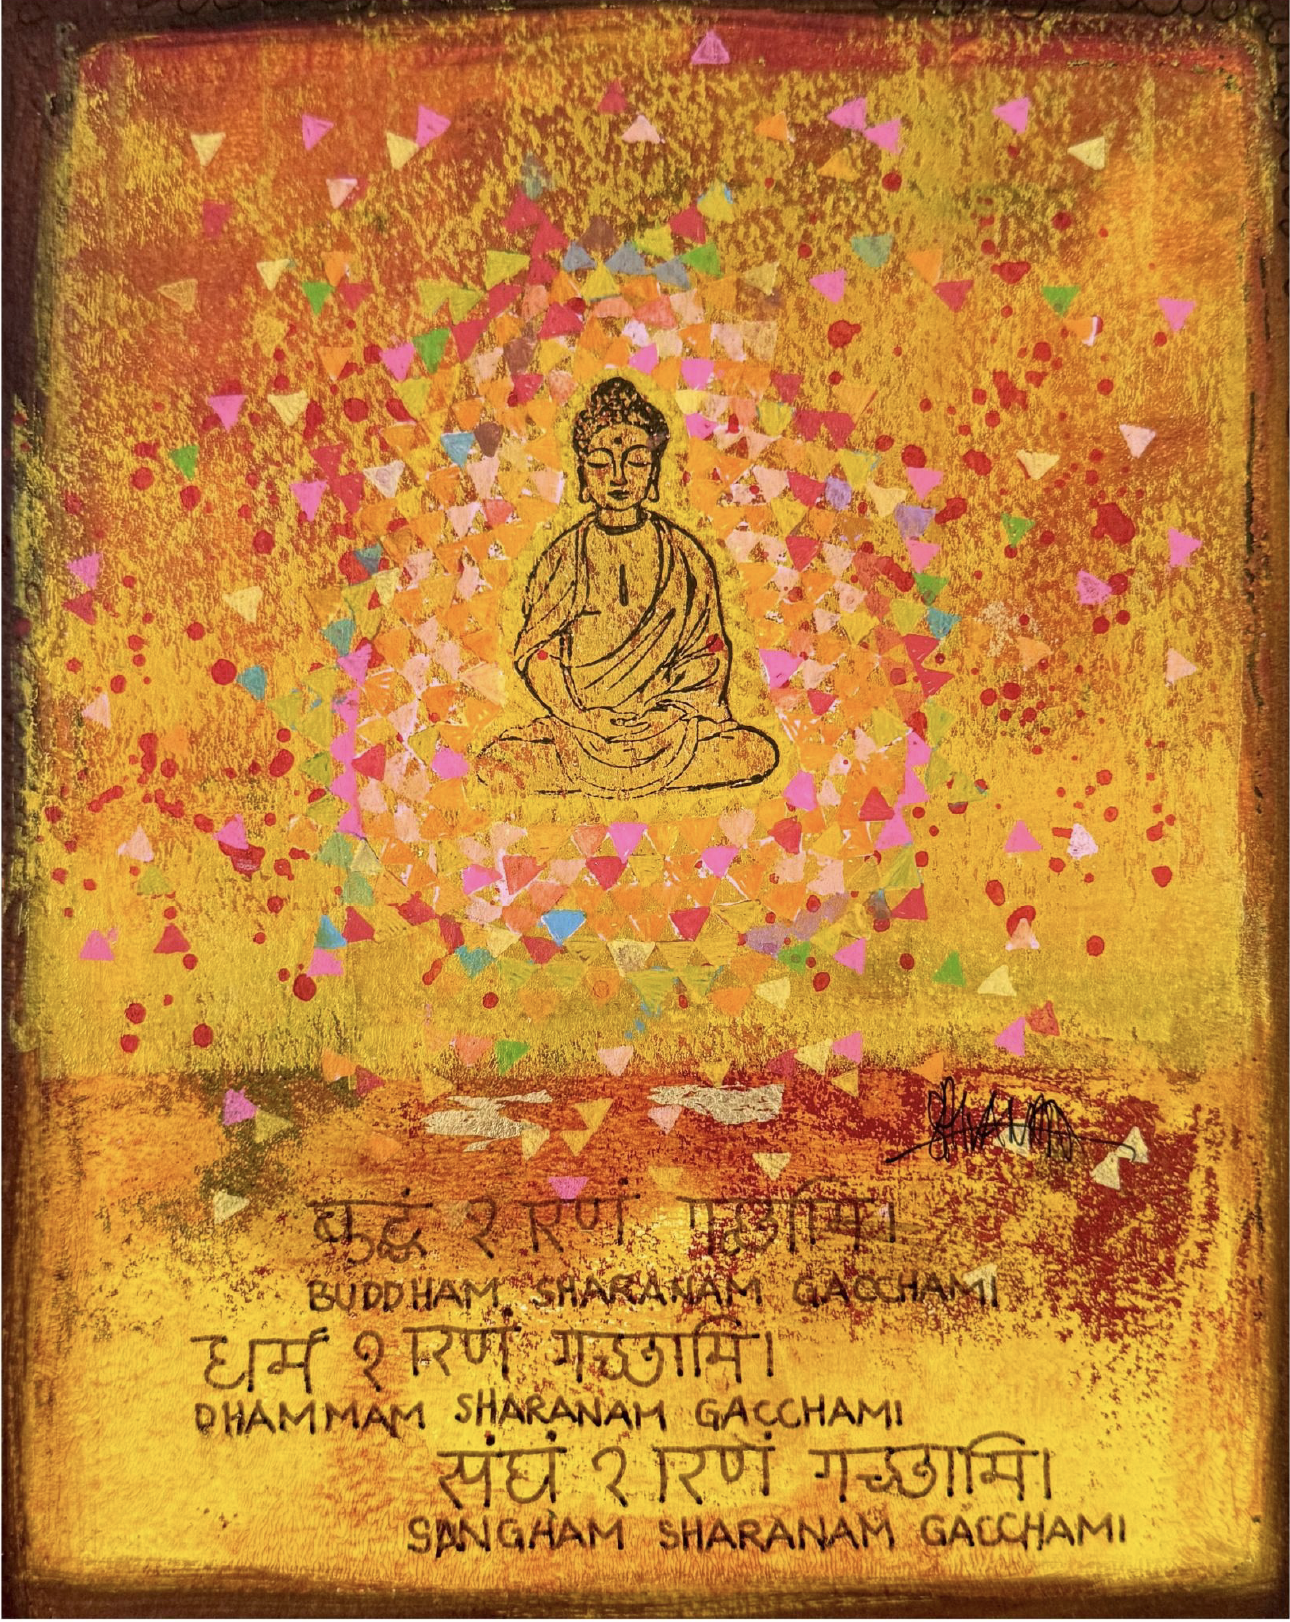 बुद्धं शरणं गच्छामि।
BUDDHAM SHARANAM GACCHAMI
धर्मं शरणं गच्छामि।
DHAMMAM SHARANAM GACCHAMI
संघं शरणं गच्छामि।
SANGHAM SHARANAM GACCHAMI